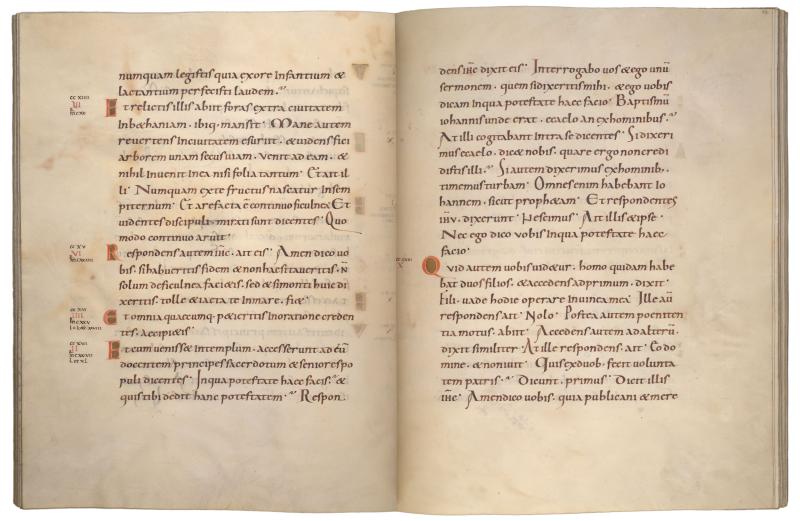 numquam legistis quia exore infantium &
lactantium perfecisti laudem.
Et relictis illis abiit foras extra ciuitatem
inb&haniam. ibiq; mansit. Mane autem
reuertens inciuitatem esuriit. & uidens fici
arborem unam secus uiam. uenit ad eam. &
nihil inuenit inea nisi folia tantum. Et ait il
li. Numquam exte fructus nascatur insem
piternum. Et arefacta e continuo ficulnea. Et
uidentes discipuli. mirati sunt dicentes. Quo
modo continuo aruit.
Respondens autem ihc. ait eis. Amen dico uo
bis. si habueritis fidem & non haesitaueritis. n
solum deficulnea faci&is. sed & simonti huic di
xeritis. tolle & iacta te inmare. fi&.
Et omnia quaecumq; p&ieritis inoratione creden
tes. accipi&is.
Et cum ueniss& intemplum. accesserunt ad eu
docentem principes sacerdotum & seniores po
puli dicentes. Inqua potestate haec facis. &
quis tibi dedit hanc potestatem. Respon
dens ihc dixit eis. Interrogabo uos & ego unu
sermonem. quem si dixeritis mihi. & ego uobis
dicam inqua potestate haec facio. Baptismu
iohannis unde erat. ecaelo an exhominibus.
At illi cogitabant intra se dicentes. Si dixeri
mus ecaelo. dic& nobis. quare ergo non credi
distis illi. Si autem dixerimus exhominib;.
timemus turbam. Omnes enim habebant io
hannem. sicut proph&am. Et respondentes
ihu. dixerunt. Nescimus. Ait illis & ipse.
Nec ego dico uobis inqua potestate haec
facio.
Quid autem uobis uid&ur. homo quidam habe
bat duos filios. & accedens ad primum. dixit.
Fili. uade hodie operare inuinea mea. Ille au
respondens ait. Nolo. Postea autem poeniten
tia motus. abiit. Accedens autem ad alteru.
dixit similiter. At ille respondens. ait. Eo do
mine. & non iuit. Quis exduob; fecit uolunta
tem patris. Dicunt. primus. Dicit illis
ihc. Amen dico uobis. quia publicani & mere